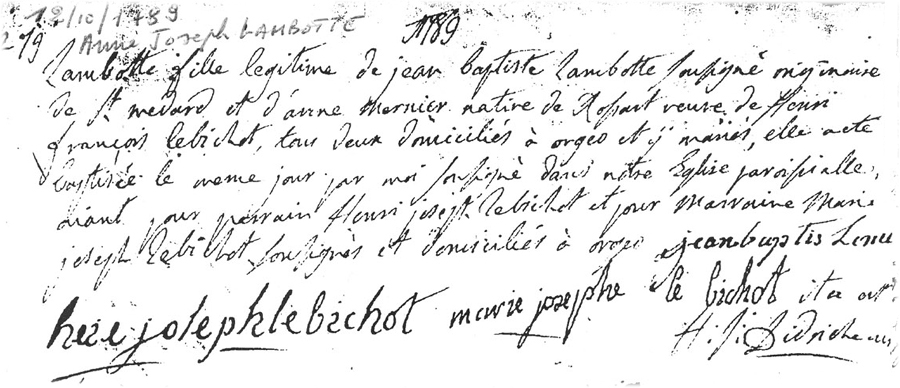 12/10/1789
Anne Joseph LAMBOTTE 1789
19
Lambotte fille legitime de jean baptiste Lambotte soussigné originaire
de St. médard et d'anne Mernier native de Rossart veuve de Henri
françois Lebichot, tous deux domiciliés à orgeo et y mariés, elle a ete
baptisée le meme jour par moi soussigné dans notre Eglise paroissialle,
aiant pour parrain Henri joseph Lebichot et pour Marraine Marie
joseph Lebichot soussignés et domiciliés à orgeo jean baptis
josephlebichot marie josephe le bichot
H. J.